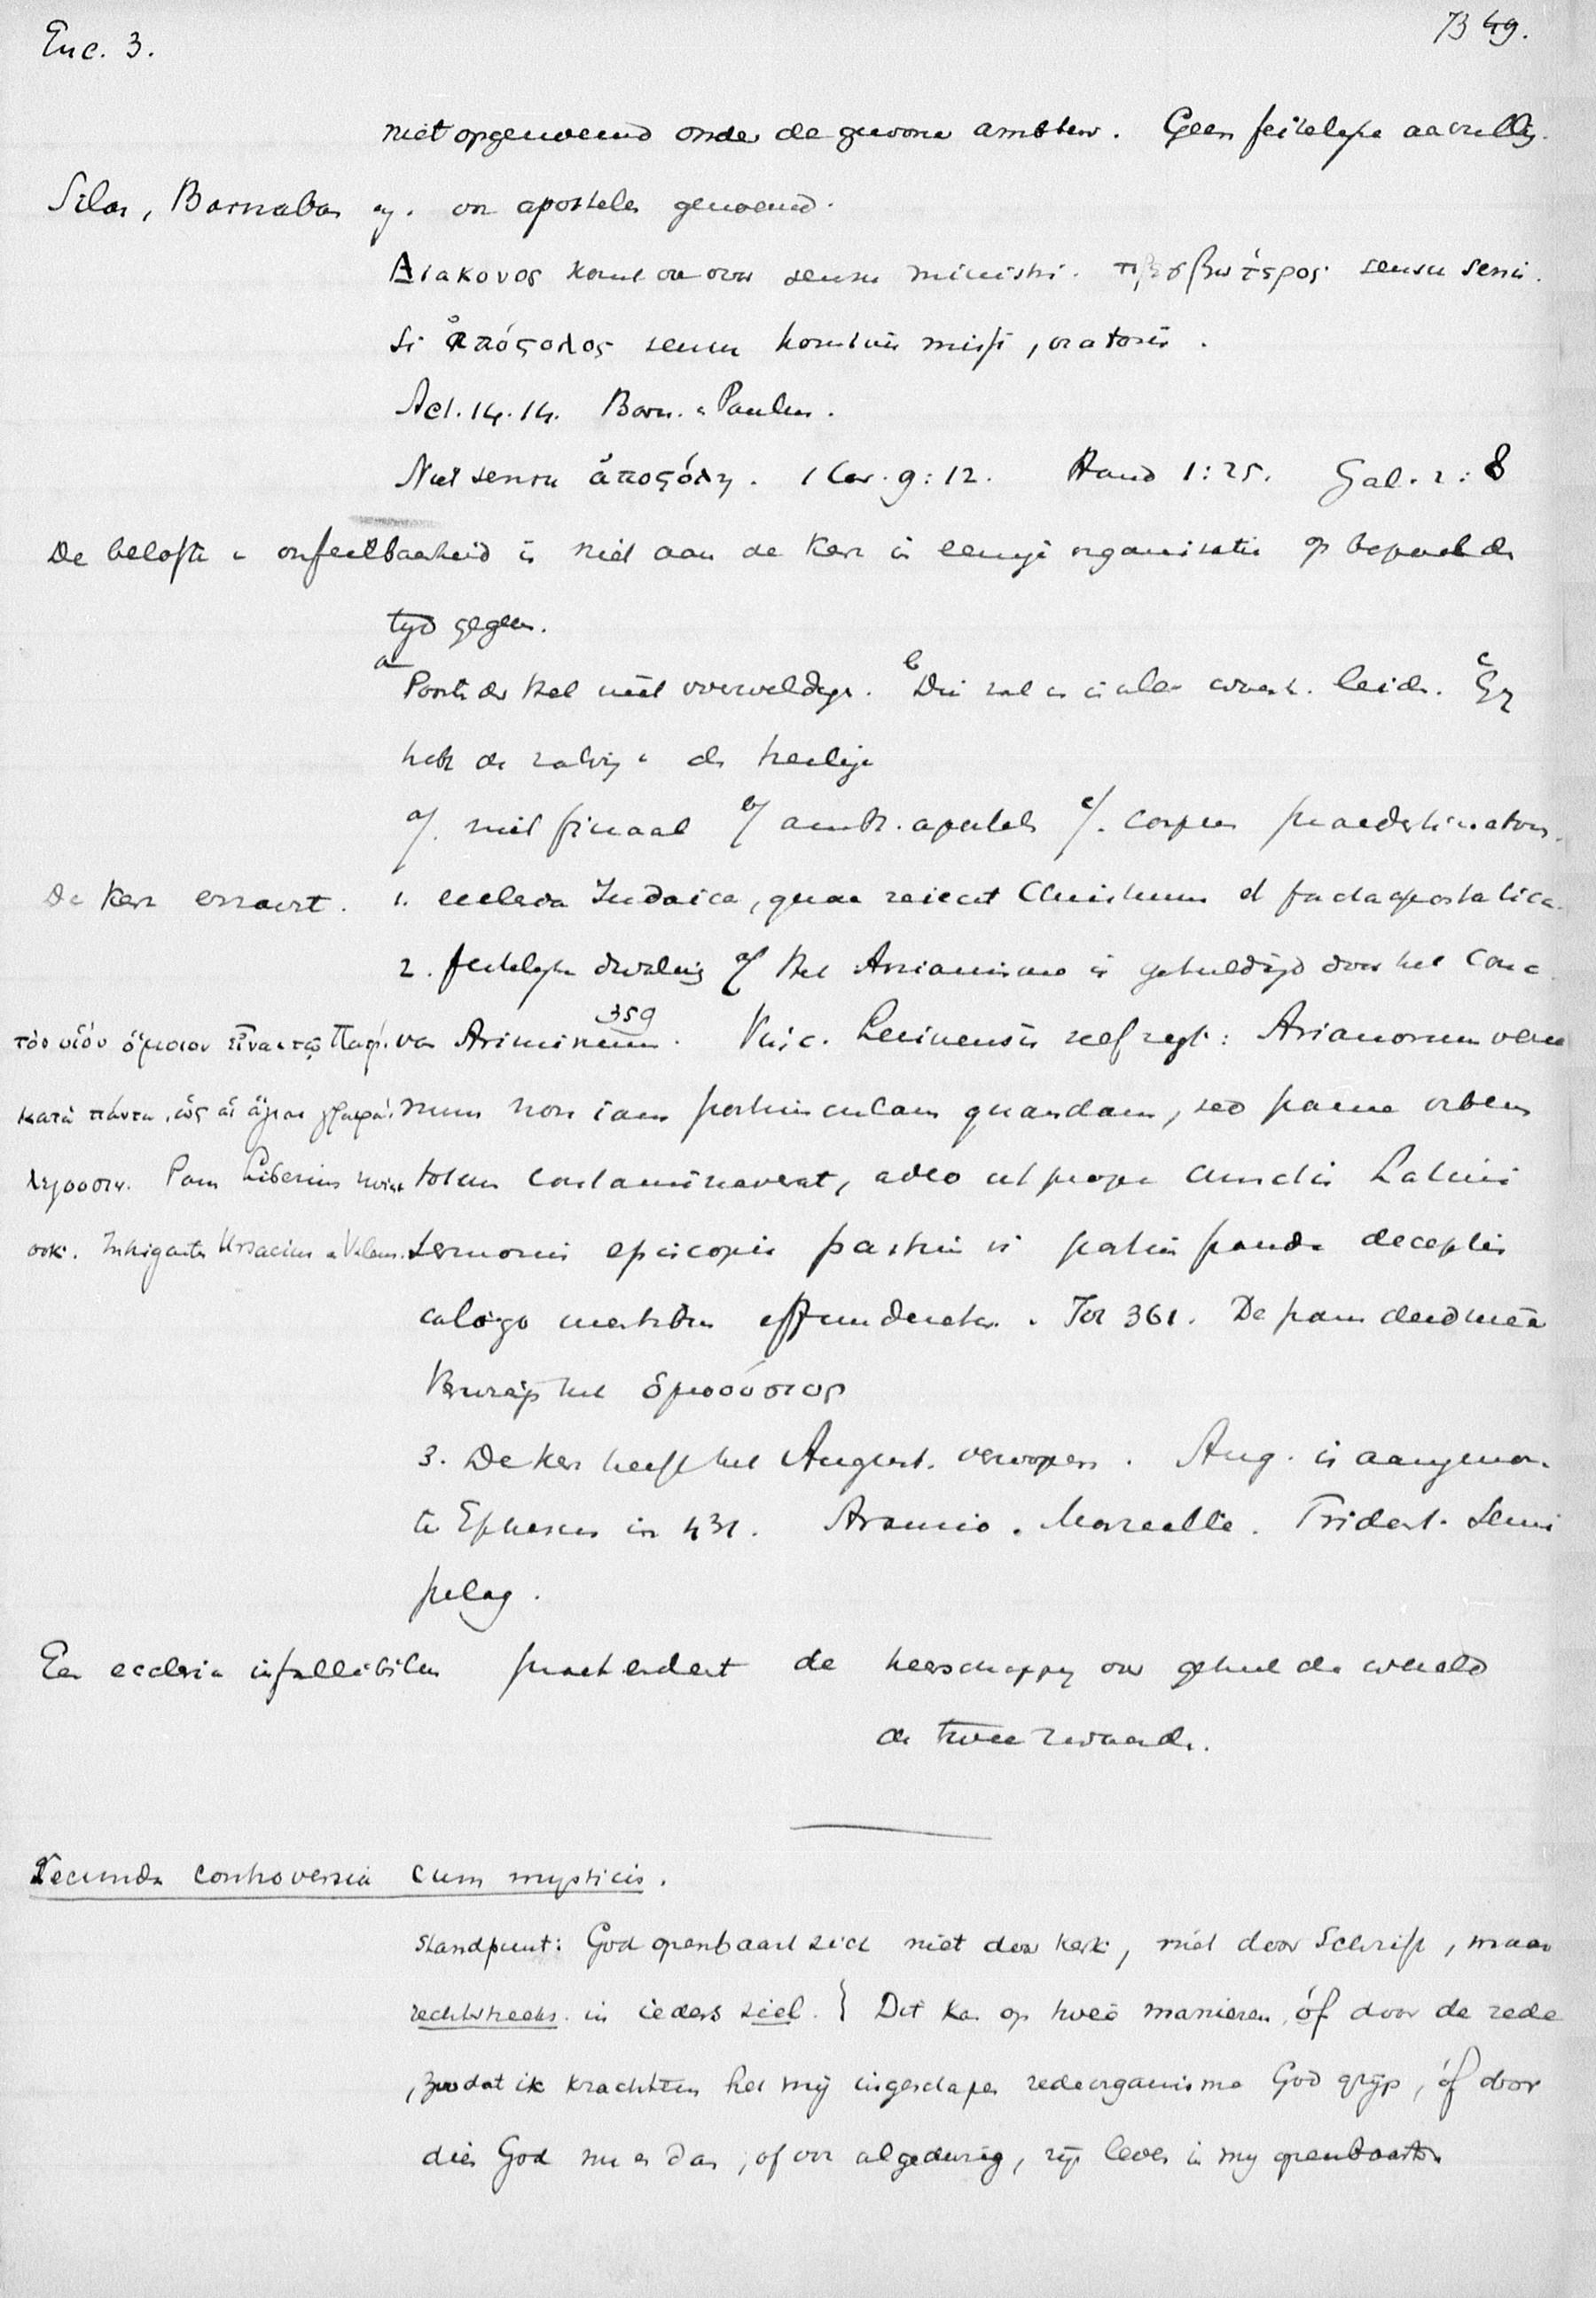 Enc. 3.
73 49.
niet opgenoemd onder de gewone ambten. Geen feitelyke aanvullg.
Silas, Barnabas ez. ook apostelen genoemd.
Διακονος komt ook voor sensu ministri. πρεσβυτέρος sensu senis.
Si ἀπόςολος sensu hominis missi, oratoris.
Act. 14.14. Barn. en Paulus.
Niet sensu ἀποςόλη. 1 Cor. 9:12. Hand 1:25. Gal. 2:8
De belofte v onfeilbaarheid is niet aan de Kerk in eenige organisatie op bepaalden
tyd gegeven.
a Poorten der hel niet overweldigen. b Die zal u in alle waarh. leiden. c Gy
hebt de zalving v den heilige
a/. niet finaal b/ ambt. apostels c/. corpus praedestinatorum.
De Kerk erraert. 1. ecclesia Judaica, quae reiecit Christum et facta apostatica.
2. feitelyke dwaling a/ Het Arianisme is gehuldigd door het Conc.
τὸν υἱόν ὅμοιον εἶναι τῷ Πατρί
κατὰ πάντα, ὡς αἱ ἅγιαι γραφαί
λεγουσιν. Paus Liberius
ook. Instigante Ursacius en Valens.
van Ariminum 359. Vinc. Lerinensis zelf zegt: Arianorum vene
num non iam portiunculam quandam, sed paene orbem
totum contaminaverat, adeo ut prope cunctis Latini
sermonis episcopis partim vi partim fraude deceptis
caligo mentibus effunderetur. Tot 361. De paus deed mee
Verwerp het ὁμοούσιος
3. De Kerk heeft het August. verworpen. Aug. is aangenomen
te Ephesus in 431. Arausio. Marseille. Trident. Semi
pelag.
Een ecclesia infallibilis praetendeert de heerschappy over geheel de wereld
de twee zwaarden.
Secunda controversia cum mysticis.
Standpunt: God openbaart zich niet door kerk, niet door Schrift, maar
rechtstreeks in ieders ziel. } Dit kan op tweeë manieren, óf door de rede
, zoodat ik krachtens het mij ingeschapen redeorganisme God grijp, óf door
dien God nu en dan, of ook algedurig, zijn leven in my openbaart